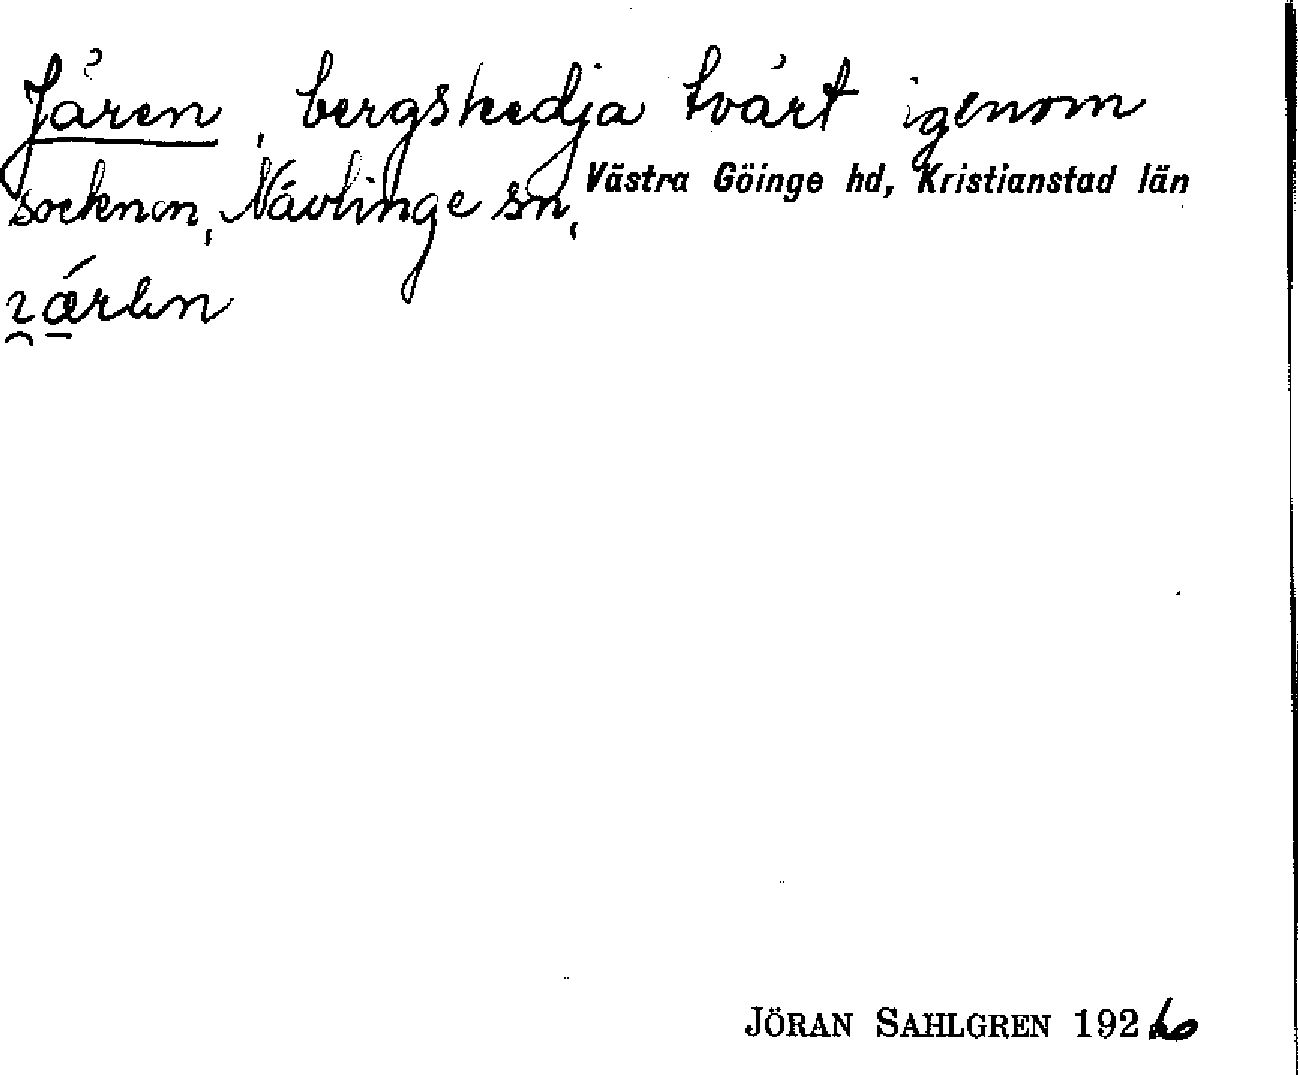 Jären, bergskedja tvärt igenom
socknen, Nävlinge sn, Västra Göinge hd, Kristianstad län
JÖRAN SAHLGREN 1926